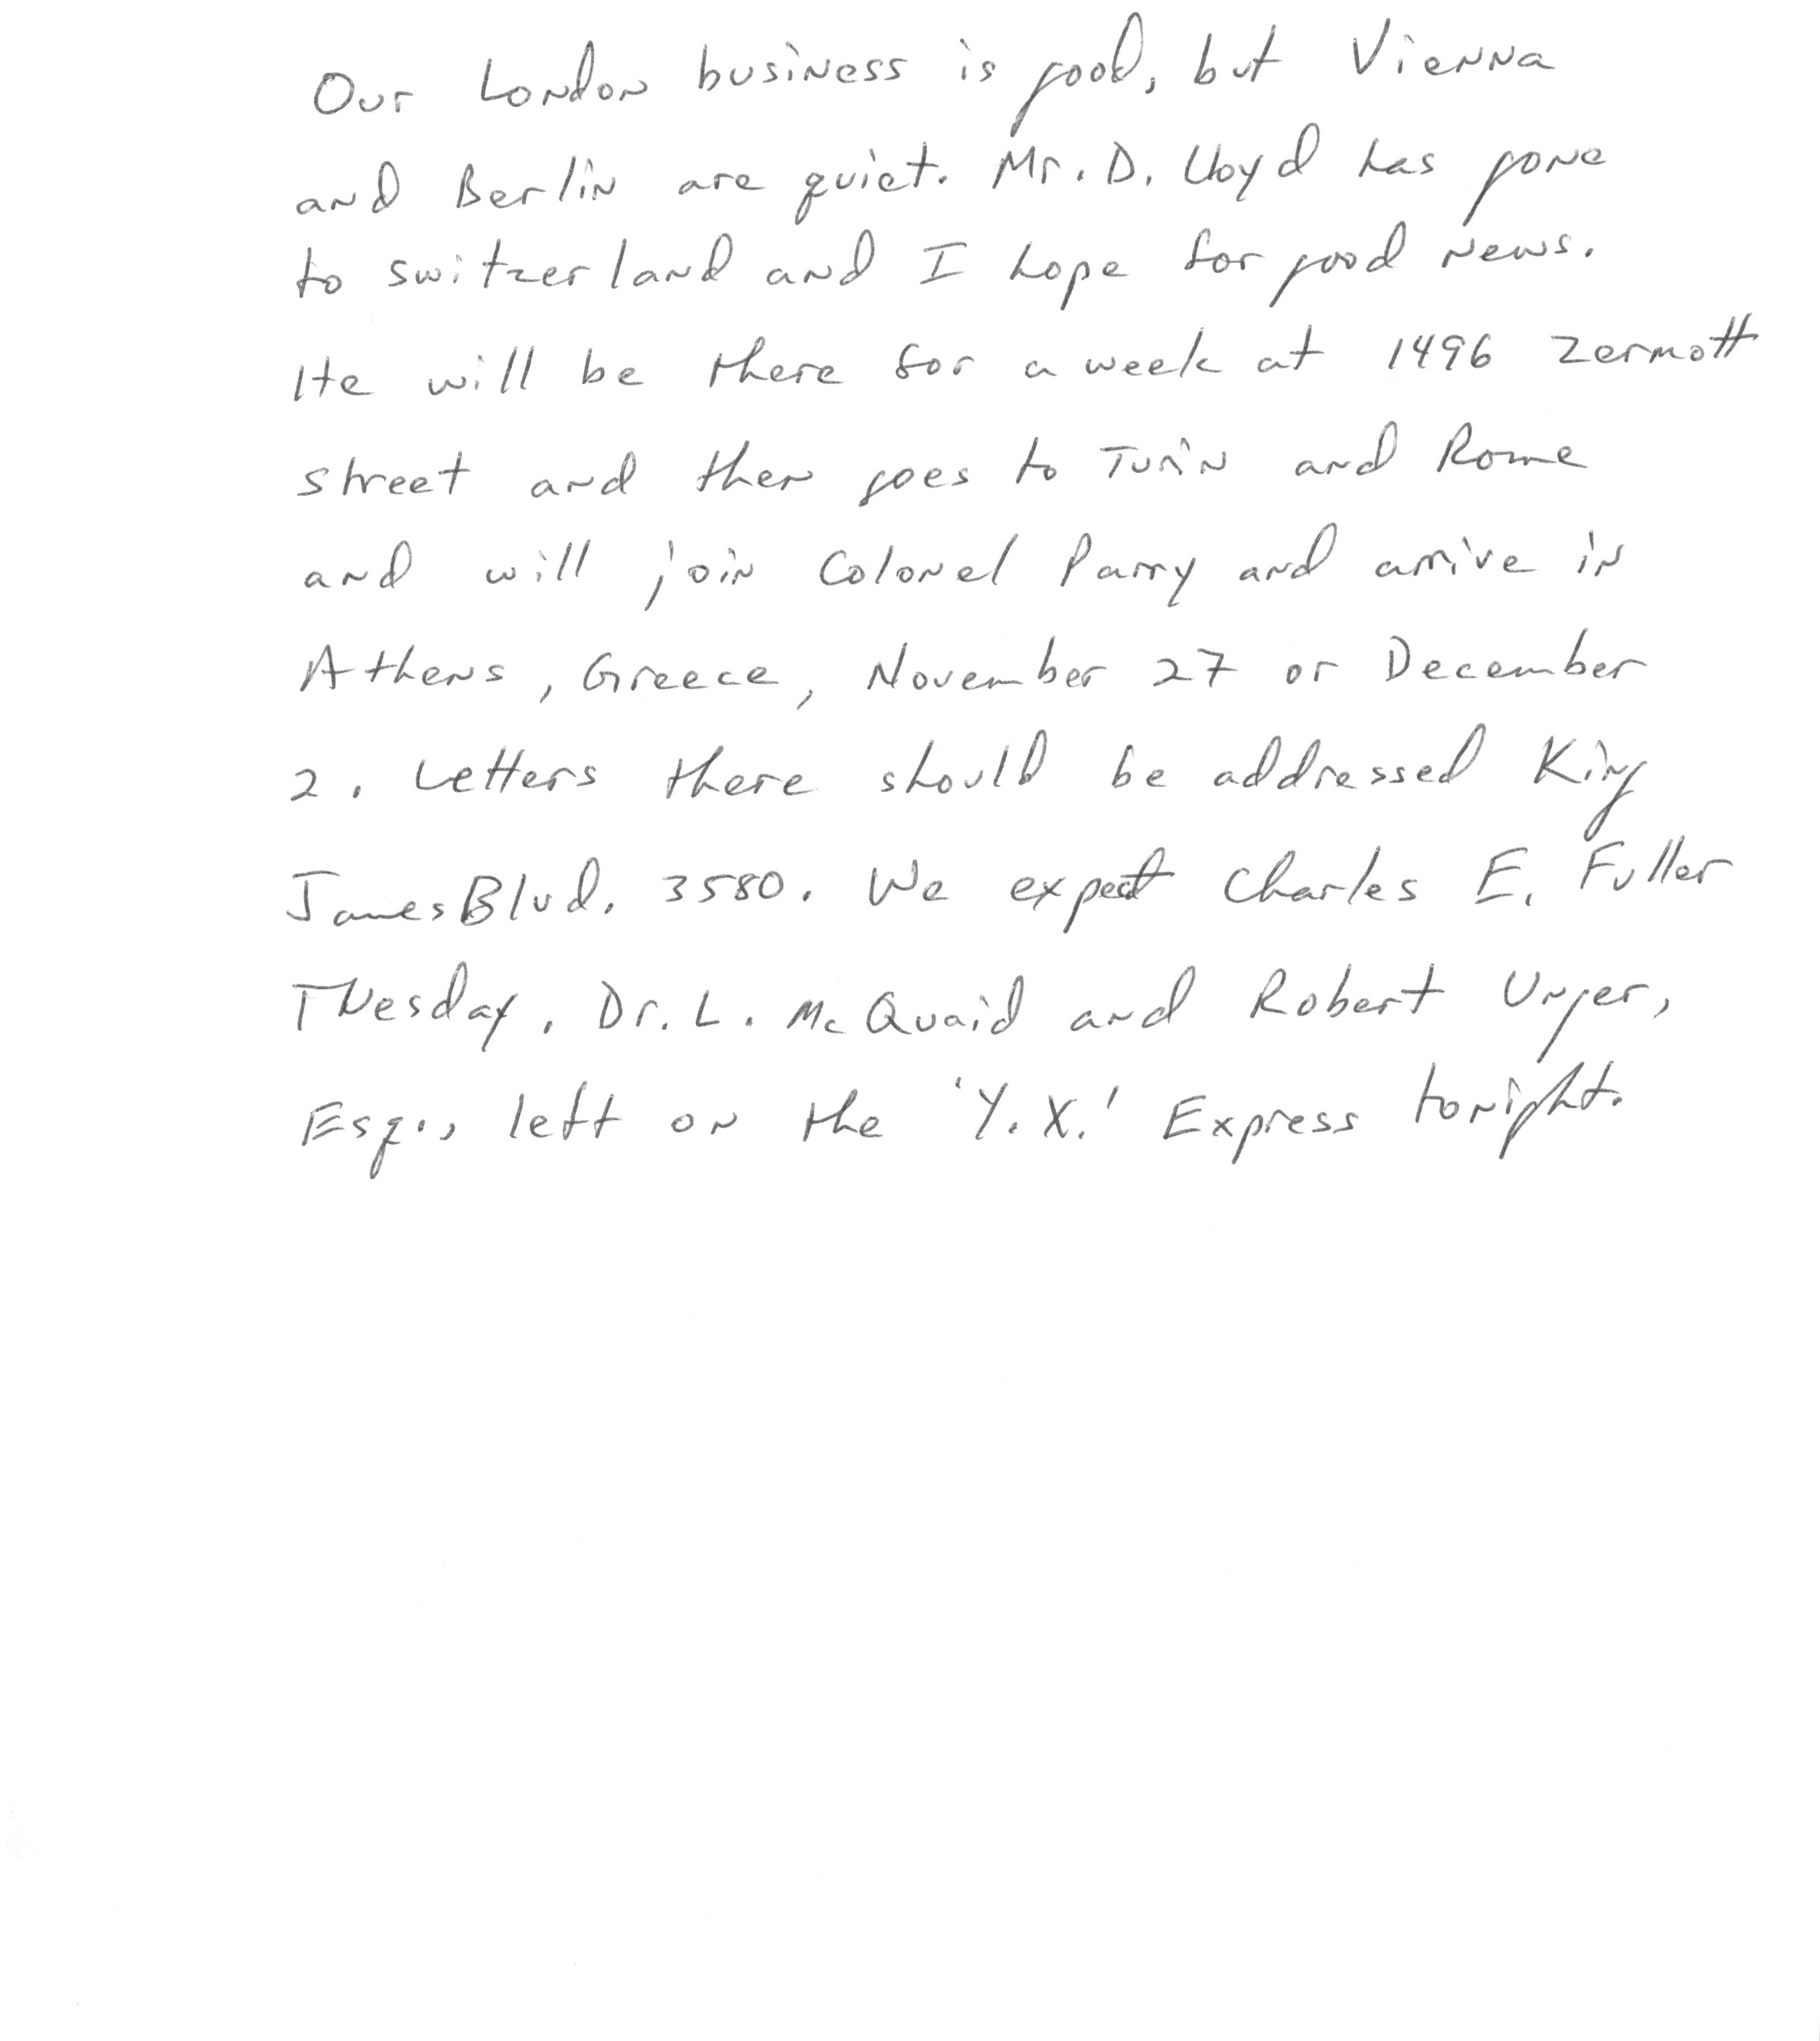 Our London business is good, but Vienna
and Berlin are quiet. Mr. D. Lloyd has gone
to switzerland and I hope for good news.
He will be there for a week at 1496 Zermott
street and then goes to Turin and Rome
and will join Colonel Parry and arrive in
Athens, Greece, November 27 or December
2. Letters there should be addressed King
James Blvd. 3580. We expect Charles E. Fuller
Tuesday. Dr. L. McQuaid and Robert Unger,
Esq., left on the 'Y.X.' Express tonight.